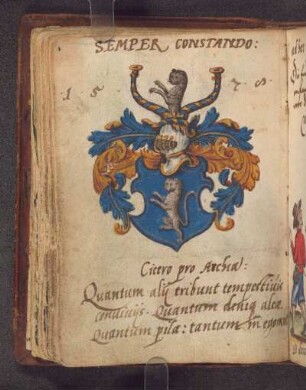 SEMPER CONSTANDO:
1 5 7 8.
Cicero pro Archia:
Quantum alij tribunt tempestiuis
conuiuijs. Quantum deniq alea
Quantum pilæ: tantum